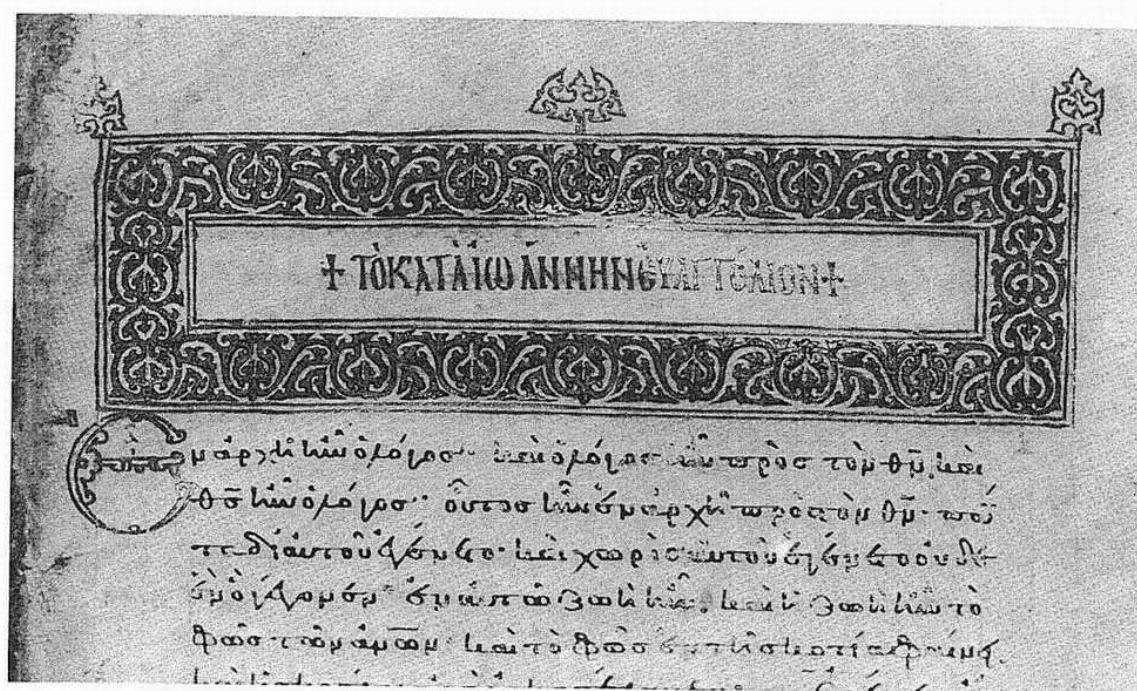 + ΤὸΚΑΤΑ ἸΩΆΝΝΗΝ ΕΥΑΓΓΕΛΙΟΝ +
Ἐν ἀρχῆ ἦν ὁ λόγος· καὶ ὁ λόγος ἦν πρὸς τὸν θν̄, καὶ
θς̄ ἦν ὁ λόγος· οὗτος ἦν ἐν ἀρχῆ πρὸς τὸν θν̄· πάν
τα δι αὐτοῦ ἐγένετο· καὶ χωρὶς αὐτοῦ ἐγένετο οὐδὲ
ἐν ὃ γέγονεν· ἐν αὐτῶ ζωὴ ἦν, καὶ ἡ ζωὴ ἦν τὸ
φῶς τῶν ἀνων̄· καὶ τὸ φῶς ἐν τῆ σκοτία φαίνει